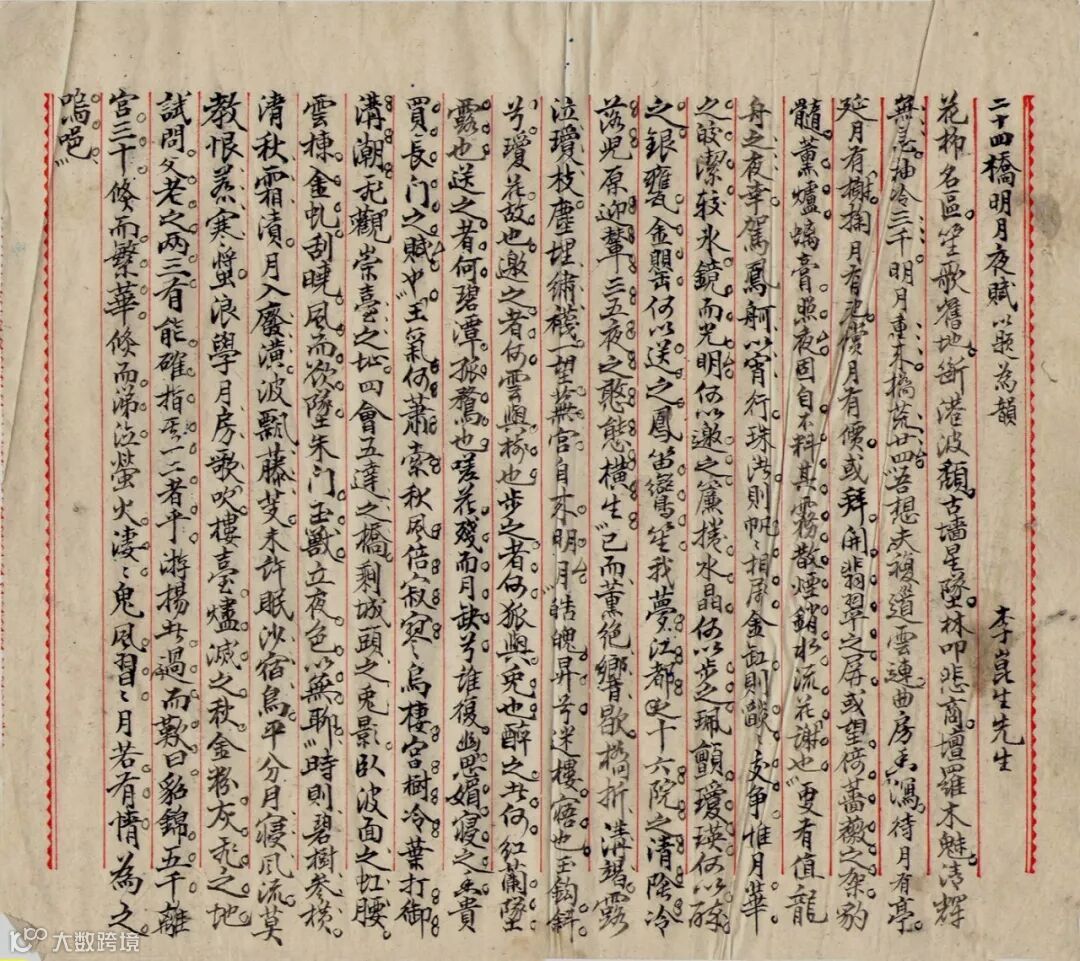 二十四橋明月夜賦以題為韻
李崑生先生
花柳名區笙歌舊地斷港波頹古墻星墜林叩悲商壇羅木魅清輝
無恙抽冷三千明月重來橋荒廿四吾想夫複道雲連曲房香瀉待月有亭
延月有榭掬月有池償月有價或拜開翡翠之屏或望倚薔薇之架豹
髓薰爐螭膏照夜固自不料其霧散煙銷水流花謝也更有值龍
舟之夜幸駕鳳舸以宵行珠湾則帆々相屬金缸則燄々交争惟月華
之皎潔較氷鏡而光明何以邀之簾捲水晶何以步之珮顫瓊瑛何以酹
之銀甕金罌何以送之鳳笛鸞笙我夢江都之十六院之清陰冷
落児原迎輦三五夜之憨態橫生已而薰絕響歇橋折溝竭露
泣瓊枝塵埋繡襪望蕪宮自來明月皓魄昇兮迷樓寤也玉鉤斜
兮瓊花故也邀之者何雲與榆也步之者何狐與兎也醉之者何紅蘭墜
露也送之者何碧潭孤鶩也嗟花殘而月缺兮誰復幽思媚寢之香貴
買長门之賦也王氣何蕭索秋風倍寂寥烏棲宮樹冷葉打御
溝潮永觀崇臺之址四會五達之橋剩城頭之兎影臥波面之虹腰
雲棟金虬刮曉風而欲墜朱门玉獸立夜色以無聊時則碧樹参橫
清秋霜漬月入廢潢波飄藤芰未許眠沙宿鳥平分月寢風流莫
教恨蒸寒螿浪學月房歌吹樓臺燼滅之秋金粉灰飛之地
試問父老之兩三有能確指其一二者乎游揚者過而歎曰貂錦五千離
宮三十倏而繁華倏而涕泣螢火淒々鬼風習々月若有情為之
嗚唈
大数跨境